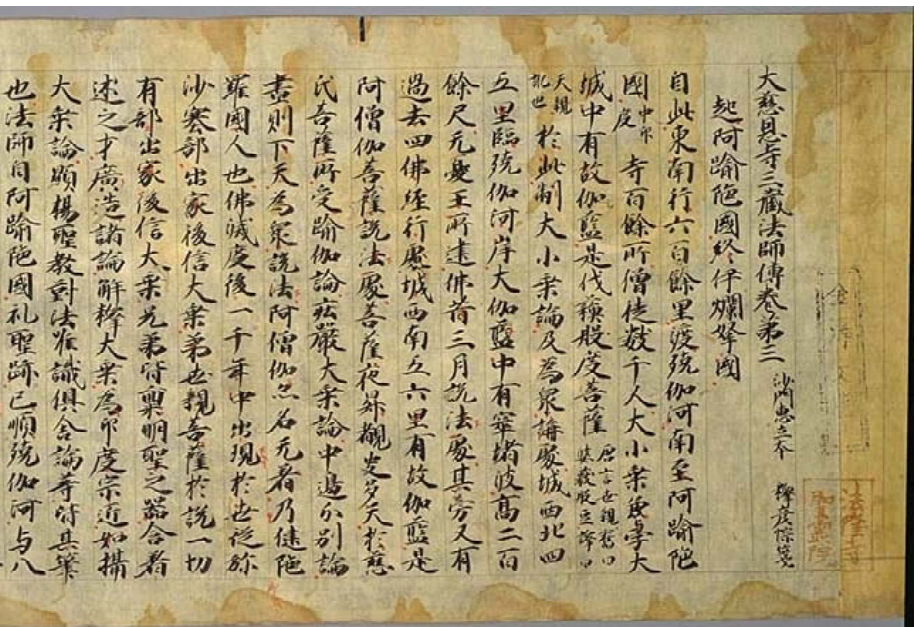 大慈恩寺三藏法師傳卷第三 沙門惠立本 釋彦悰箋
起阿踰陁國終伊爛拏國
自此東南行六百餘里渡殑伽河南至阿踰陁
國 中印度 寺百餘所僧徒數千人大小乘兼學大
城中有故伽藍是伐蘓般度菩薩 唐言世親舊曰
天親訛也 於此制大小乘論及爲衆講處城西北四
五里臨殑伽河岸大伽藍中有窣堵波高二百
餘尺无憂王所建佛昔三月說法處其旁又有
過去四佛經行處城西南五六里有故伽藍是
阿僧伽菩薩說法處菩薩夜昇覩史多天於慈
氏菩薩所受踰伽論莊嚴大乘論中邊分別論
晝則下天爲衆說法阿僧伽亦名无著乃健陁
羅國人也佛滅度後一千年中出現於世從弥
沙塞部出家後信大乘弟世親菩薩於說一切
有部出家後信大乘兄弟皆稟明聖之器含着
述之才廣造諸論解釋大乘爲印度宗近如攝
大乘論顯揚聖教對法唯識俱舍論等皆其筆
也法師自阿踰陁國礼聖跡已順殑伽河与八
法隆寺